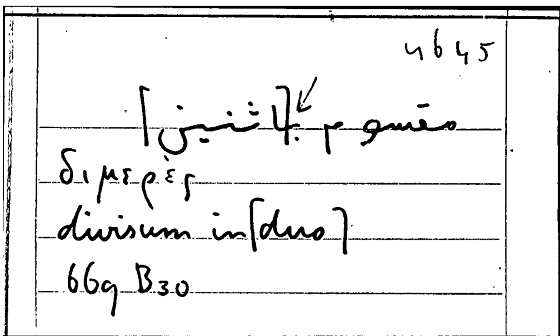 4645
مقسوم با[ثنين]
διμερὲς
divisum in [duo]
669 B30